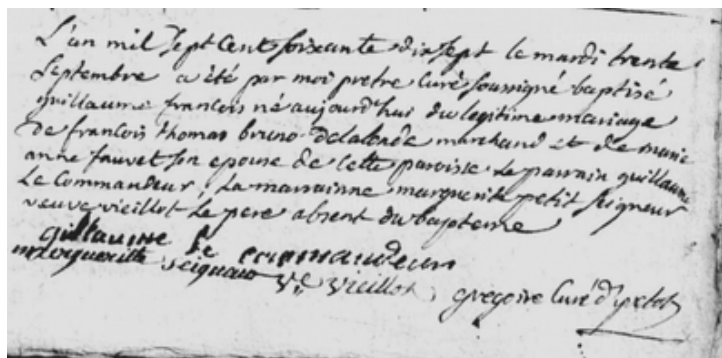 L'an mil sept cent soixante dix sept le mardi trente
septembre a été par moi pretre Curé soussigné baptisé
guillaume francois né aujourd'hui du legitime mariage
de francois thomas bruno delalande marchand et de marie
anne fauvel son epouse de cette paroisse le parrain guillaume
Le Commandeur, la marrainne marguerite petit seigneur
veuve vieillot le pere absent du bapteme
gillaume le commandeur
margueritte seigneur Ve vieillot, gregoire Curé